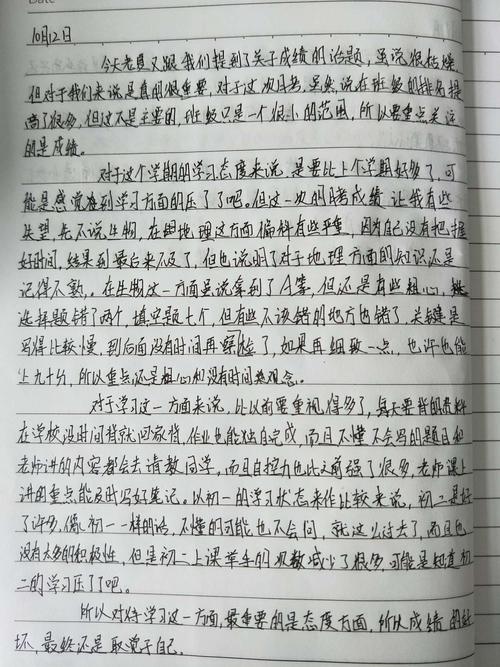 Date
10月12日
今天老夏又跟我们提到了关于成绩的话题，虽说很枯燥，
但对于我们来说是真的很重要，对于这次月考，虽然说在班级的排名提
高了很多，但这不是主要的，班级只是一个很小的范围，所以要重点关注
的是成绩。
对于这个学期的学习态度来说，是要比上个学期好多了，可
能是感觉到学习方面的压了了吧。但这一次的月考成绩让我有些
失望，先不说生物，在地理这方面偏科有些严重，因为自己没有把握
好时间，结果到最后来不及了，但也说明了对于地理方面的知识还是
记得不熟。在生物这一方面虽说拿到了A等，但还是有些粗心，
选择题错了两个，填空题七个，但有些不该错的地方也错了，关键是
写得比较慢，到后面没有时间再检了，如果再细致一点，也许也能
上九十分，所以重点还是粗心和没有时间观念。
对于学习这一方面来说，比以前要重视得多了，每天要背的资料
在学校没时间背就回家背，作业也能独自完成，而且不懂不会写的题目和
老师讲的内容都会去请教同学，而且自控力也比之前强了很多，老师课上
讲的重点能及时写好笔记。以初一的学习状态来作比较来说，初二是好
了许多，像初一一样的话，不懂的可能也不会问，就这么过去了，而且也
没有太多的积极性，但是初二上课举手的次数减少了很多，可能是知道初
二的学习压了了吧。
所以对于学习这一方面，最重要的是态度方面，所以成绩的好
坏，最终还是取觉于自己。